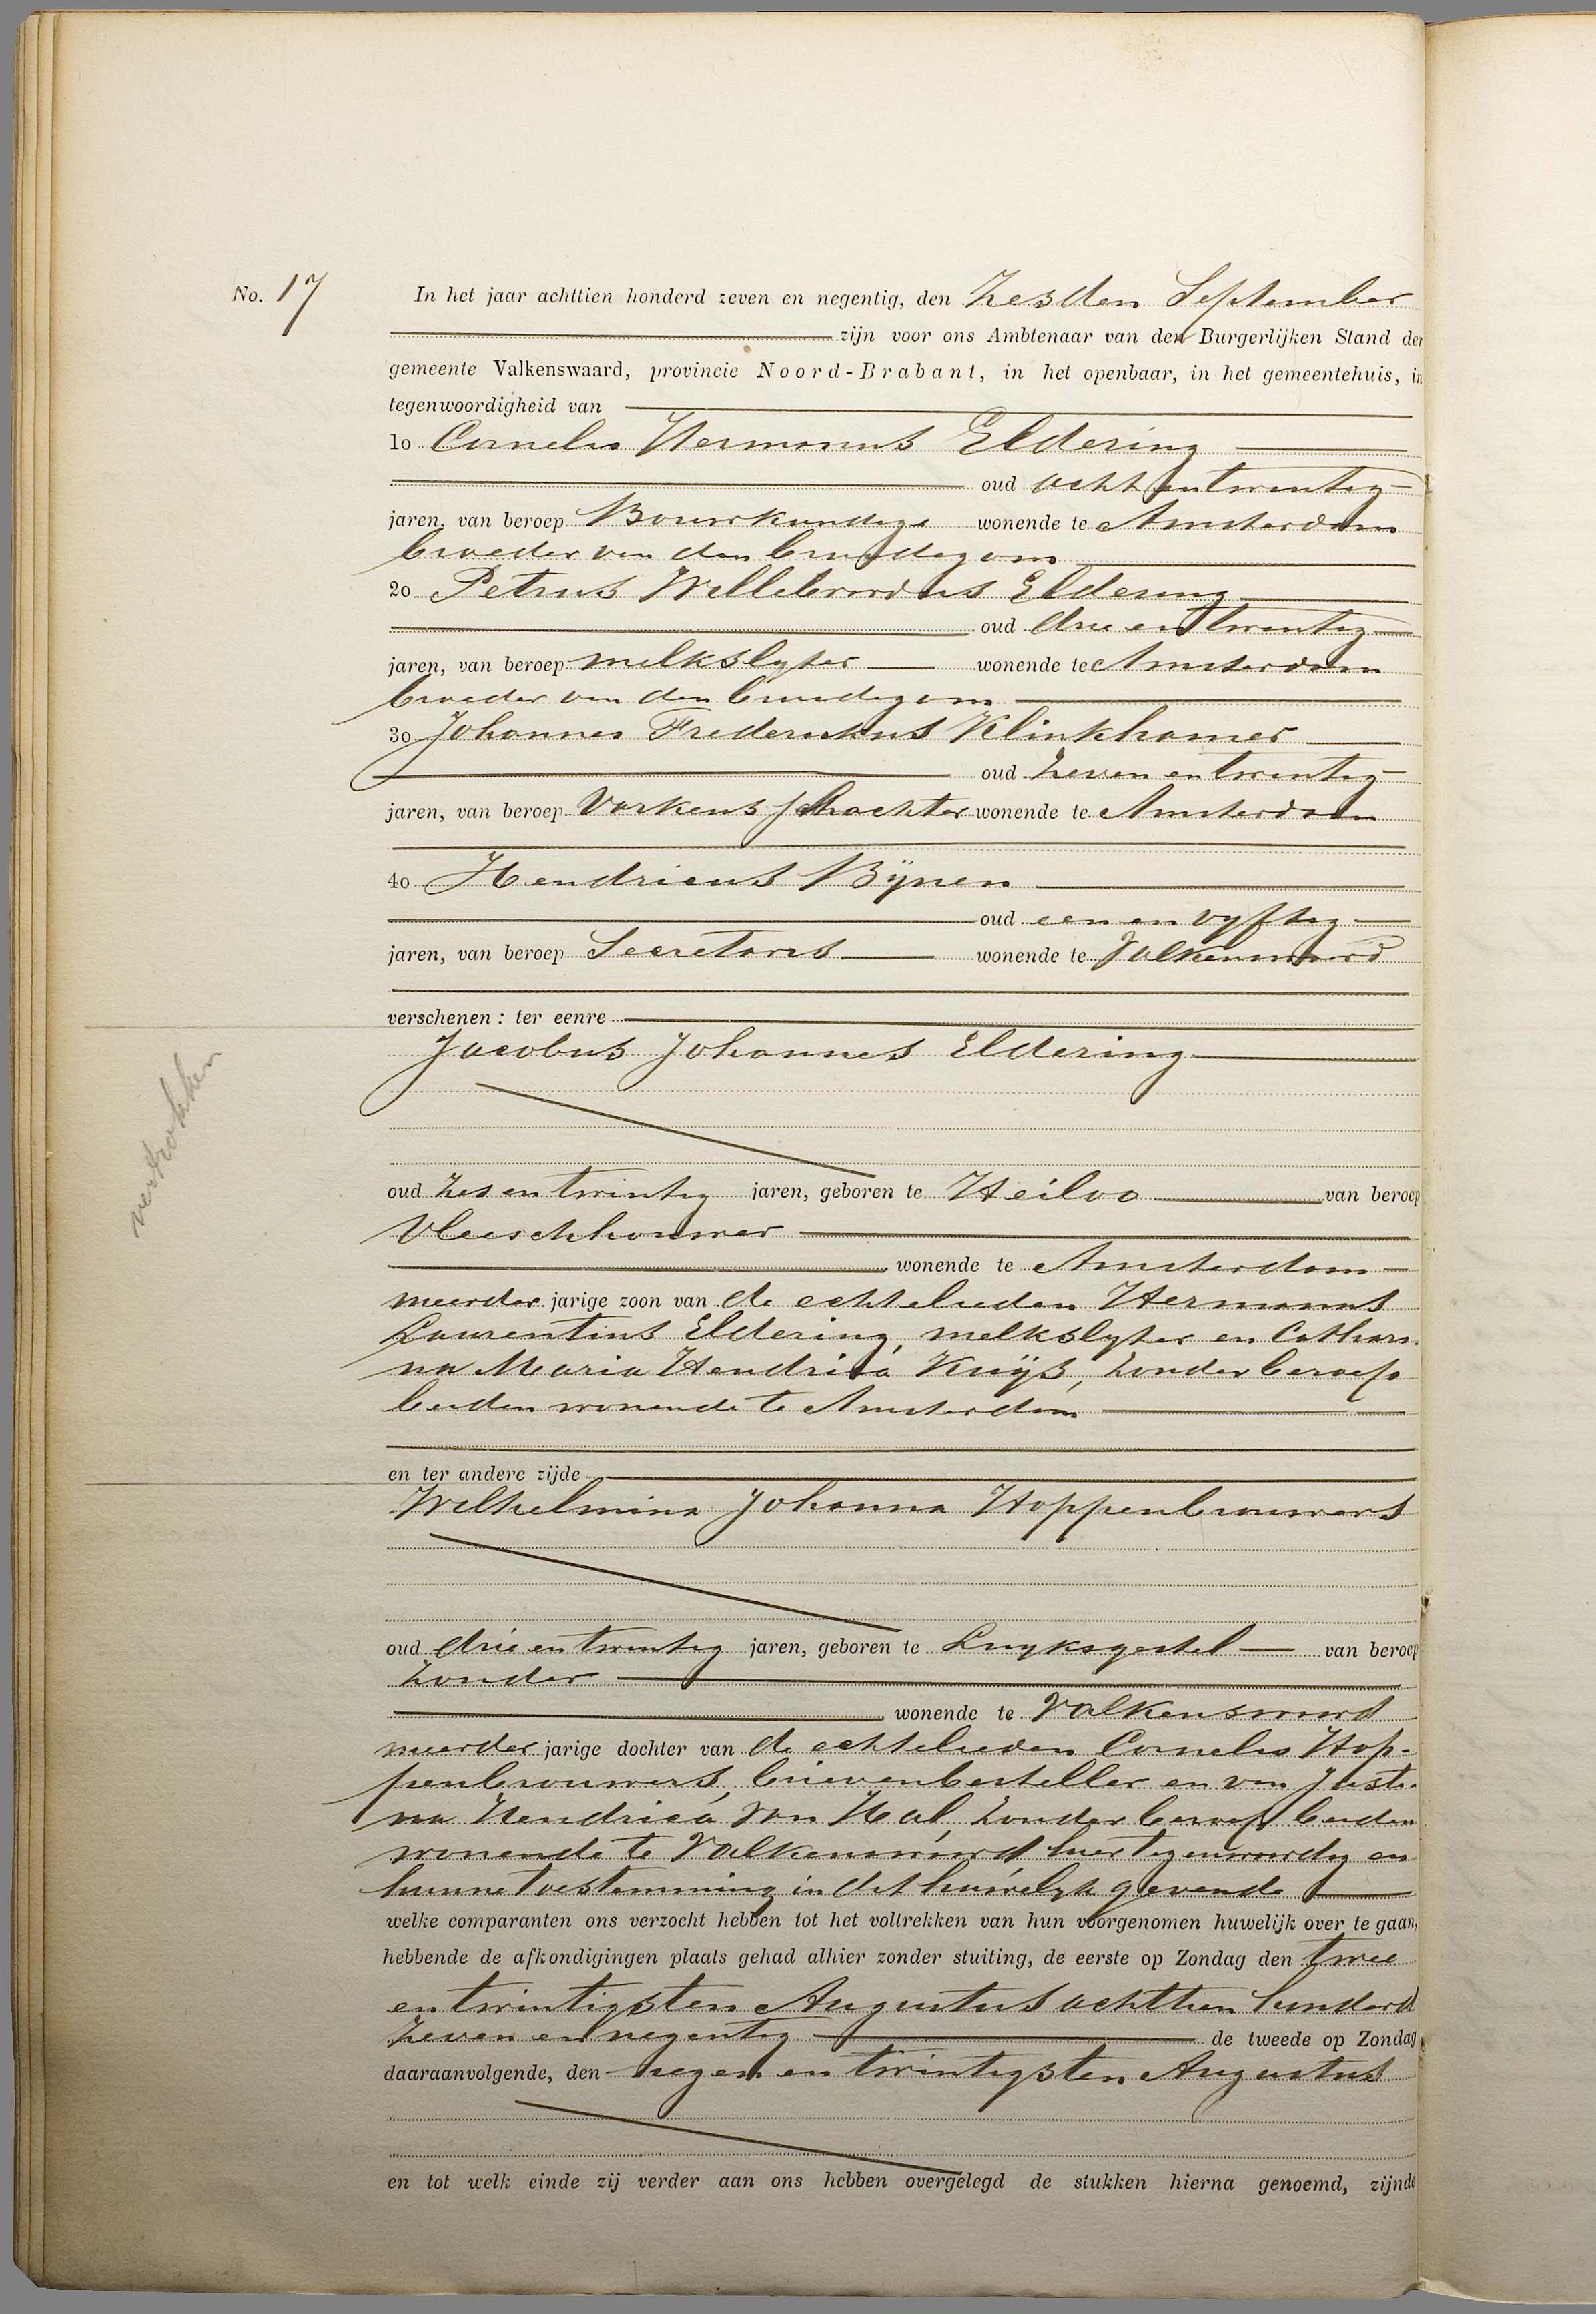 No. 17
In het jaar achttien honderd zeven en negentig, den Zesden September
zijn voor ons Ambtenaar van den Burgerlijken Stand der
gemeente Valkenswaard, provincie Noord-Brabant, in het openbaar, in het gemeentehuis, in
tegenwoordigheid van
1o Cornelis Hermanus Eldering
oud acht en twintig
jaren, van beroep Bouwkundige wonende te Amsterdam
broeder van den bruidegom
2o Petrus Willebrordus Eldering
oud drie en twintig
jaren, van beroep melkslyter wonende te Amsterdam
broeder van den bruidegom
3o Johannes Fredericus Klinkhamer
oud zeven en twintig
jaren, van beroep Varkensslachter wonende te Amsterdam
4o Hendricus Bÿnen
oud een en vyftig
jaren, van beroep Secretaris wonende te Valkenswaard
verschenen: ter eenre
Jacobus Johannes Eldering
vertrokken
oud zes en twintig jaren, geboren te Heiloo van beroep
Vleeschhouwer
wonende te Amsterdam
meerder jarige zoon van de echtelieden Hermanus
Laurentius Eldering, melkslyter en Cathari
na Maria Hendrica Kuÿs, zonder beroep
beiden wonende te Amsterdam
en ter andere zijde
Wilhelmina Johanna Hoppenbrouwers
oud drie en twintig jaren, geboren te Luyksgestel van beroep
zonder
wonende te Valkenswaard
meerder jarige dochter van de echtelieden Cornelis Hop-
penbrouwers, brievenbesteller en van Justi-
na Hendrica van Hal, zonder beroep beiden
wonende te Valkenswaard hier tegenwoordig en
hunne toestemming in dit huwelyk gevende
welke comparanten ons verzocht hebben tot het voltrekken van hun voorgenomen huwelijk over te gaan,
hebbende de afkondigingen plaats gehad alhier zonder stuiting, de eerste op Zondag den twee
en twintigsten Augustus achttien honderd
zeven en negentig de tweede op Zondag
daaraanvolgende, den negen en twintigsten Augustus
en tot welk einde zij verder aan ons hebben overgelegd de stukken hierna genoemd, zijnde